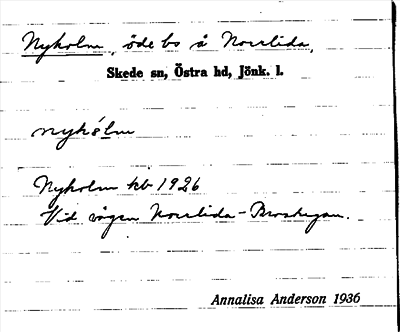 Nyholm, öde bs å Norrlida,
Skede sn, Östra hd, Jönk. l.
nyhólm
Nyholm kb 1926
Vid vägen Norrlida -
Annalisa Anderson 1936